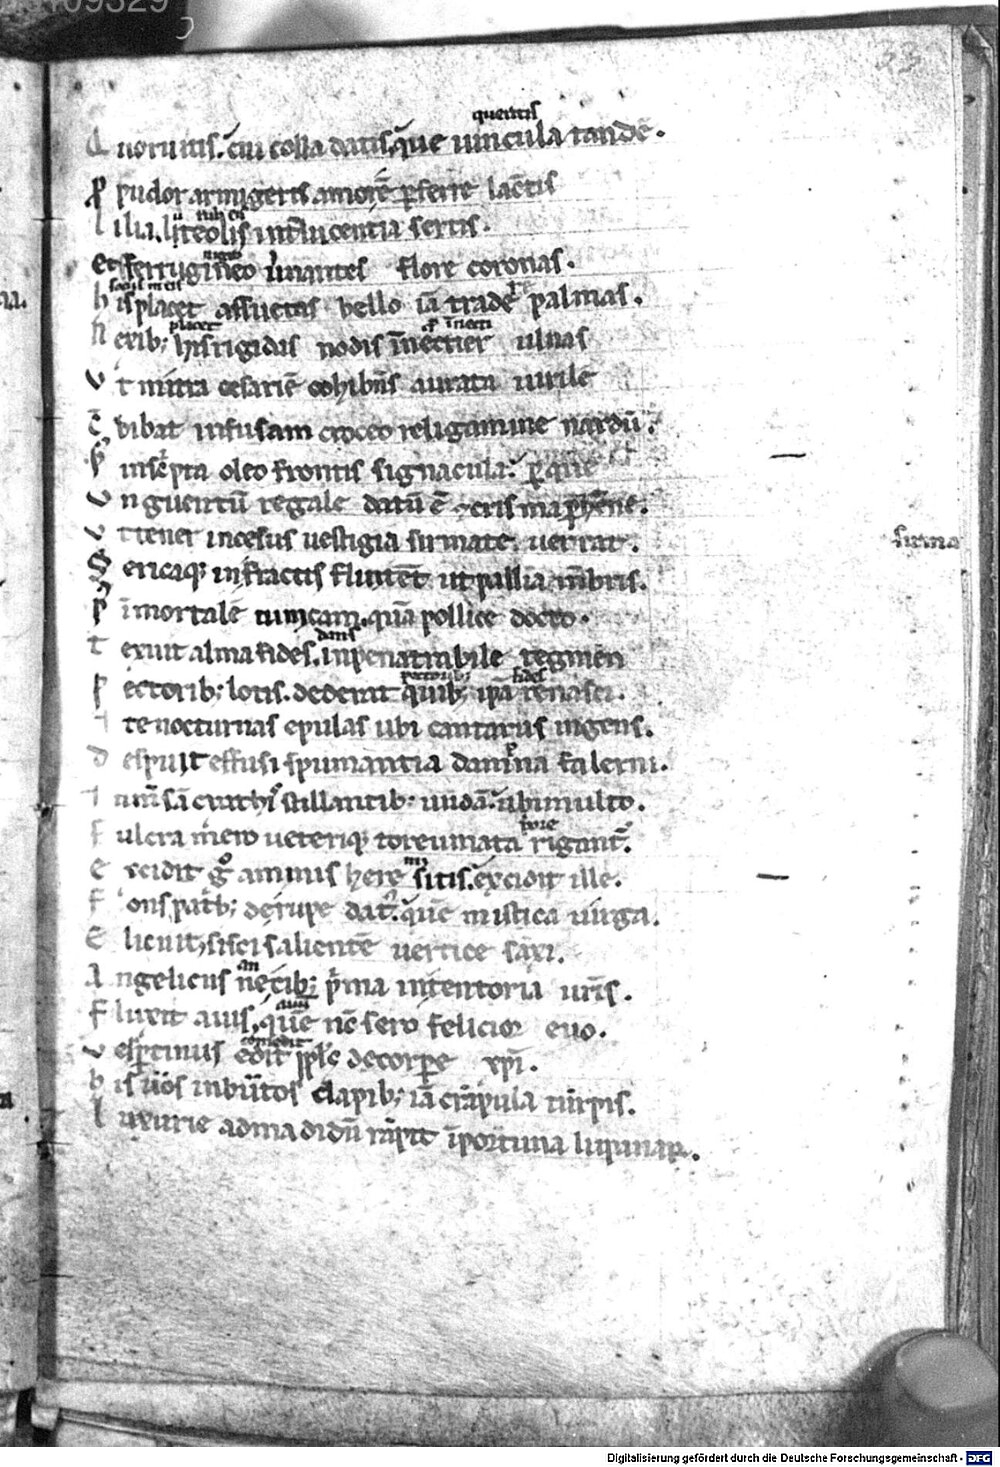 33
queritis
Quo ruitis. cui colla datis. que uincula tandē.
P pudor armigeris amorē pferre lacetis
Lilia luteolis int̄lucentia sertis.
et ferrugineo u̾nantes flore coronas.
his placet assuetas bello iā tradere palmas.
placet
nexib; his rigidas nodis īnectier ulnas
ut mitra cesariē cohibēs aurata uirilē
c̄bibat infusam croceo religamine nardū.
P inscripta oleo frontis signacula. p que
unguentū regale datū ē
ut tener incesus uestigia sirmate uerrat.
sirma
Sericaq; infractis fluitēt ut pallia mēbris.
P īmortalē tunicam. quā pollice docto.
dans
texuit alma fides. inpenatrabile tegmen
pectorib; fides
pectorib; lotis. dederat quib; ipā renasci.
nocturnas epulas ubi cantarus ingens.
despuit effusi spumantia damna falerni.
stillantib; undā. ubi multo.
rore
fulcra mero ueteriq; toreumata rigant̄.
excidit g̊ animis heremi sitis. excidit ille.
fons patb; de rupe dat. quē mistica uirga.
elicuit scisi salientē uertice saxi.
an
Angelicus ne cib; pma in tentoria uris.
fluxit auis, quē nc̄ sero felicior euo.
comedit
uesptinus edit ppl̄s de corpore xpi.
his uos inbutos dapib; iā crapula turpis.
luxurie ad madidū rapit īportuna lupanar.
Digitalisierung gefördert durch die Deutsche Forschungsgemeinschaft - DFG